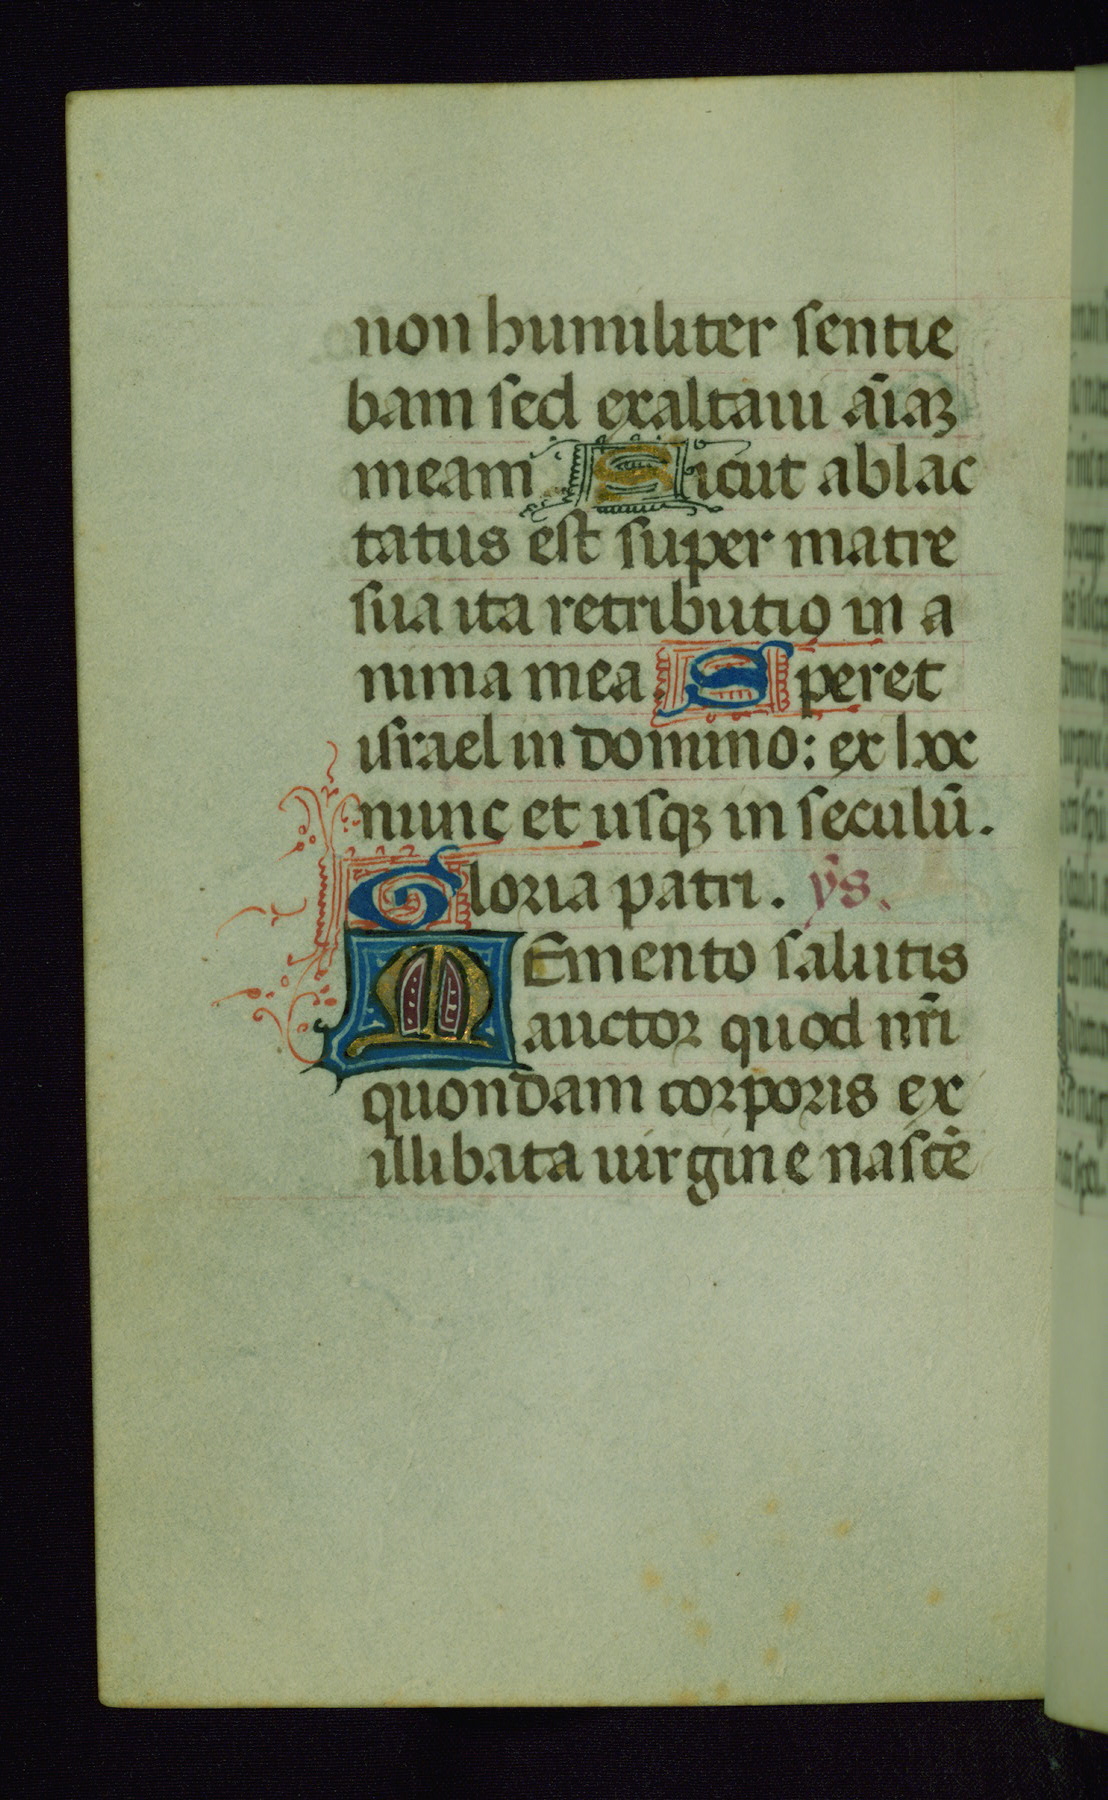 non humiliter sentie
bam sed exaltaui aĩaꝫ
meam. Sicut ablac
tatus est super matre
sua ita retributio in a
nima mea. Speret
israel in domino: ex hoc
nunc et usqꝫ in seculũ.
Gloria patri. ỹs.
Memento salutis
auctor quod nr̃i
quondam corporis ex
illibata uirgine nascẽ